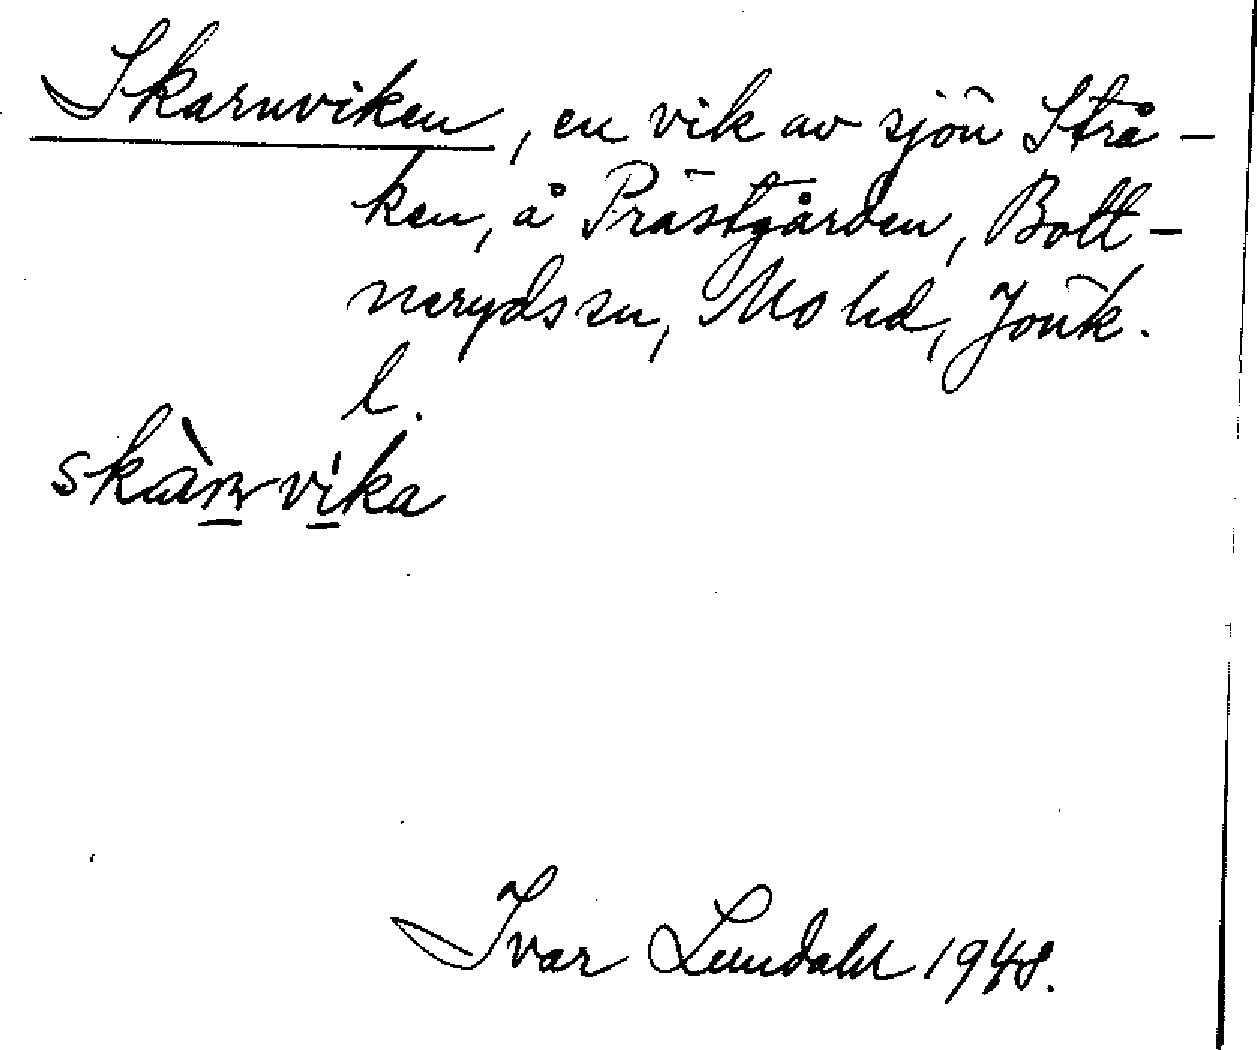 Skarnviken, en vik av sjön Strå-
ken, å Prästgården, Bott-
neryds sn, Mo hd, Jönk.
l.
skàn̠vi̠ka
Ivar Lundahl 1948.